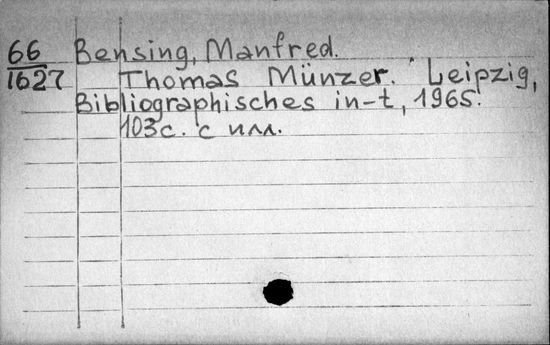 66 Bensing, Manfred.
1627 Thomas Münzer. Leipzig,
Bibliographisches in-t, 1965.
103с. с илл.